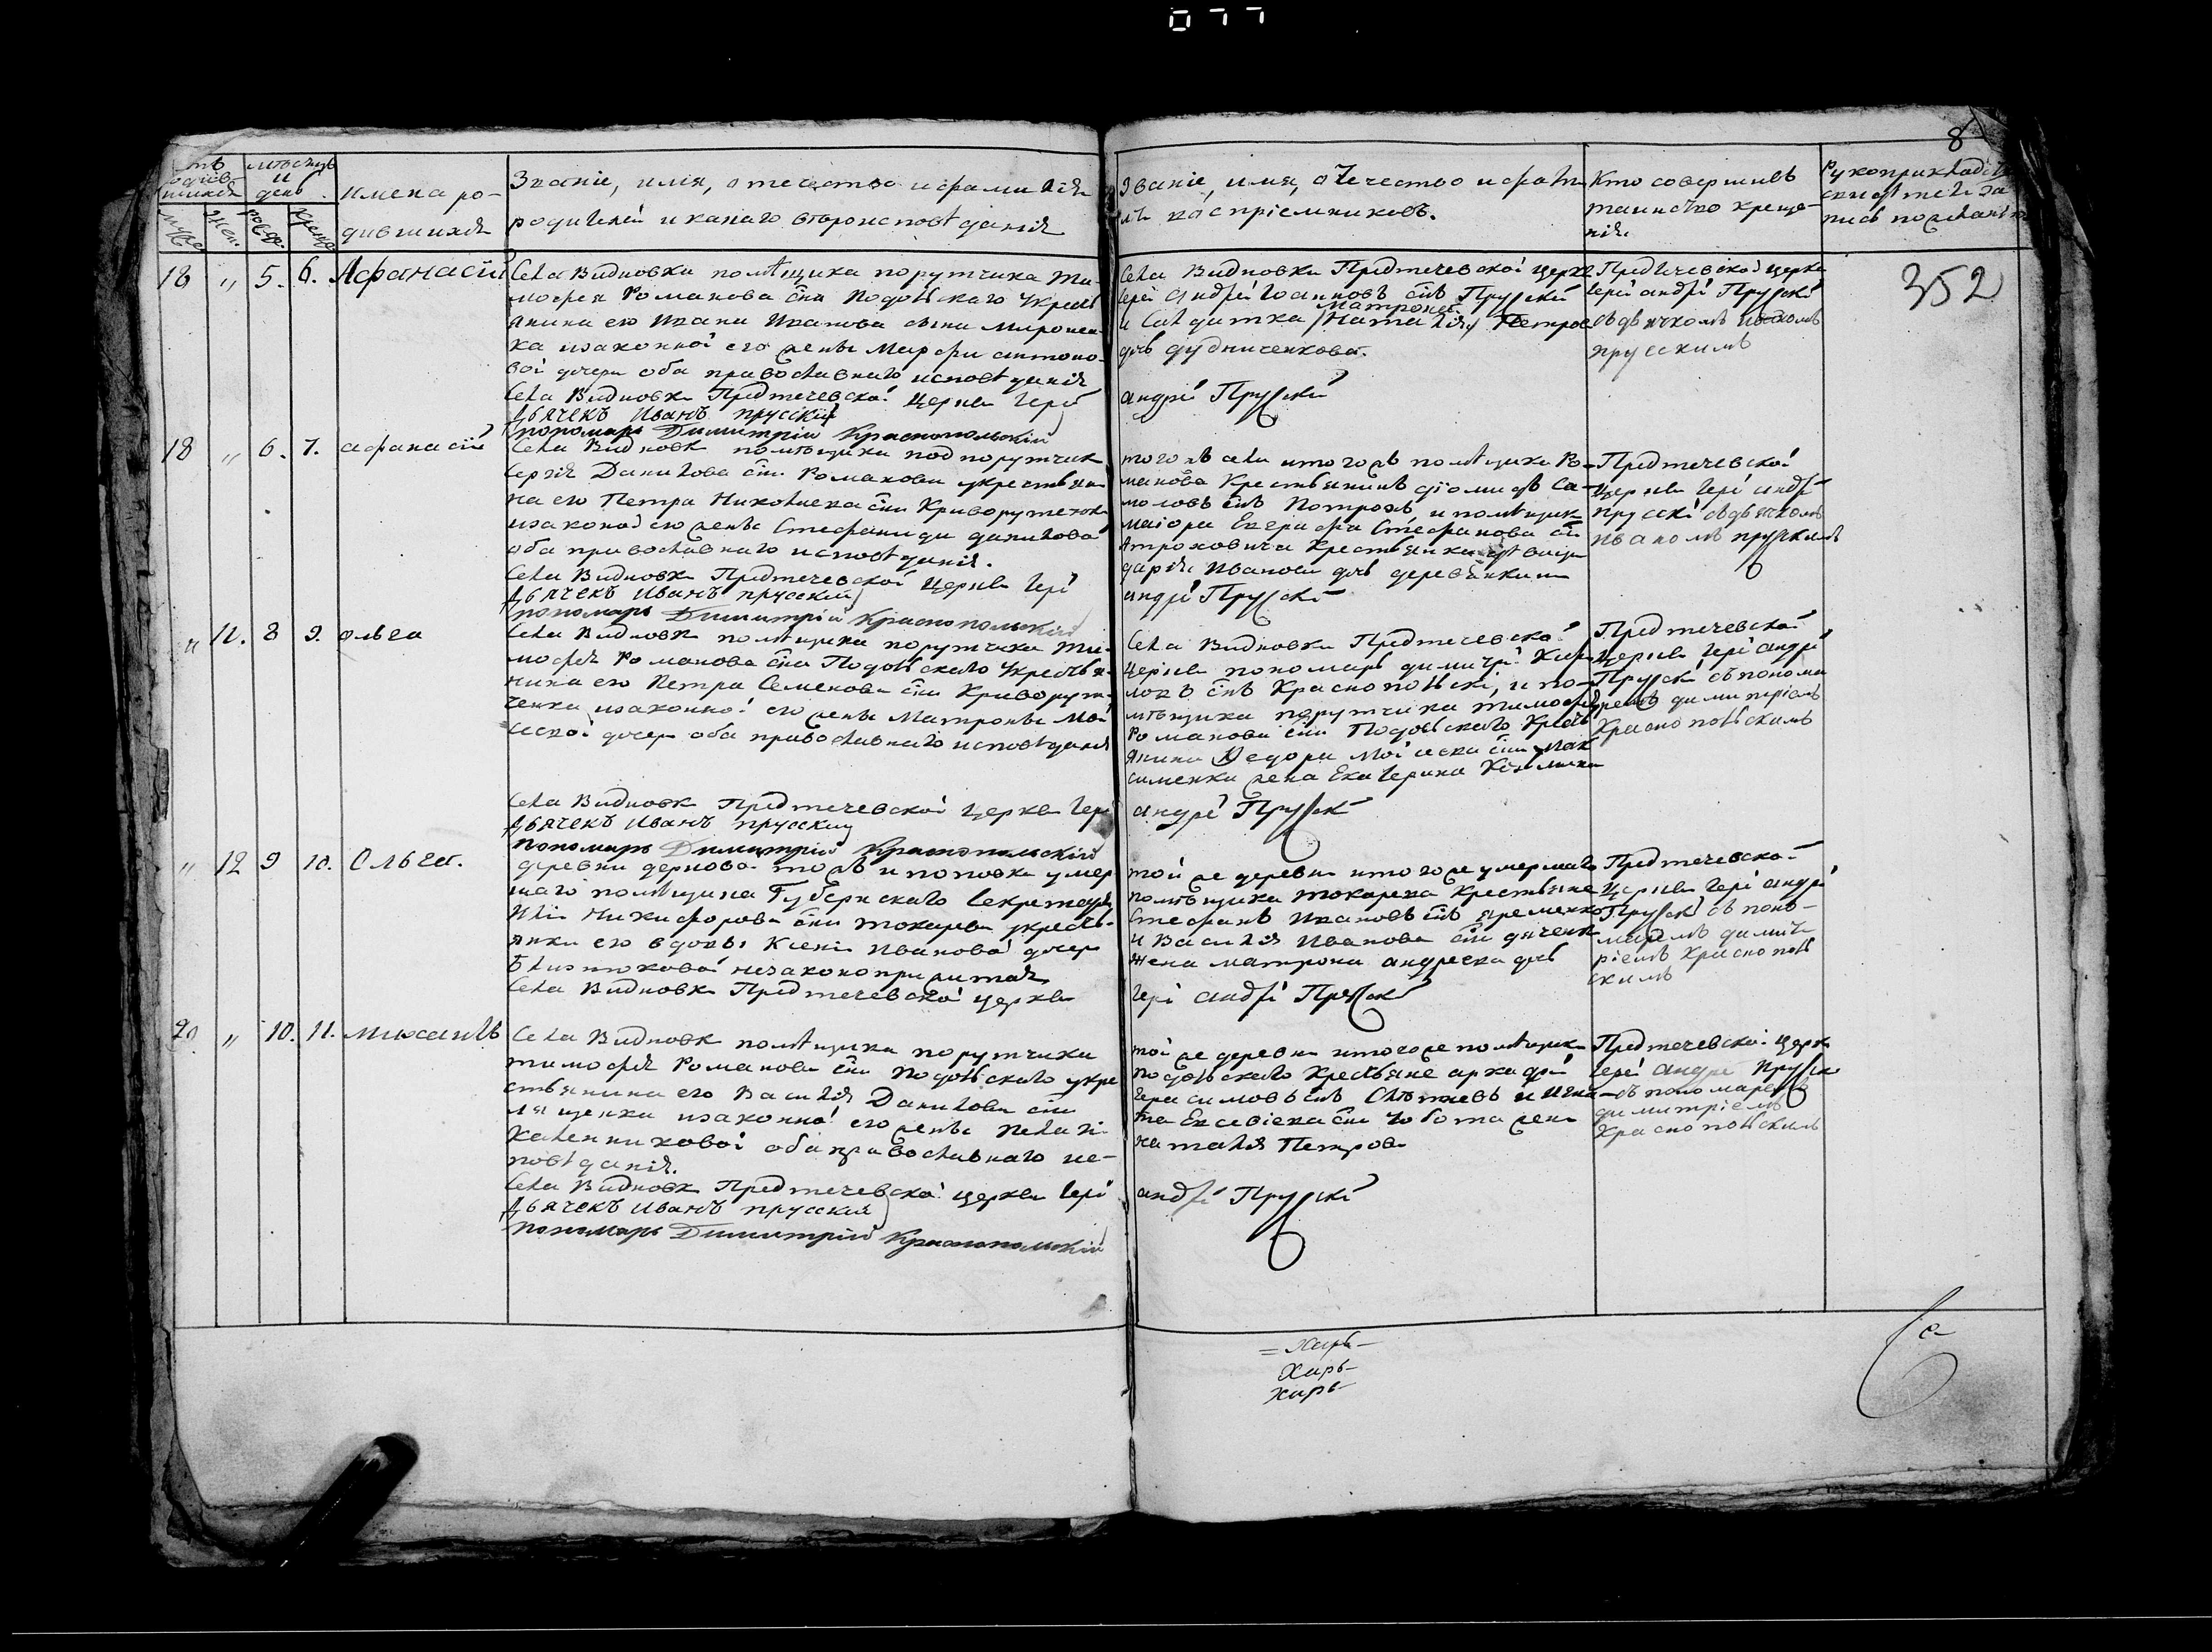 077
8
родив-
шихся
мѣсяцъ
и
день
имена ро-
дившихся
Званіе, имя, отечество и фамилія
родителей и какаго вѣроисповѣданія
Званіе, имя, отечество и фами-
воспріемниковъ.
Кто совершилъ
таинство креще-
нія.
Рукоприкладст
запись по желанію
муж.
жен.
рожд.
крещ.
352
18 " 5. 6. Афанасій
Села Видновки помѣщика порутчика Ти-
мофея Романова сна Подольскаго укресть
янина его Ивана Иванова сына Миронен-
ка изаконной его жены Марфы антоно-
вой дочери оба православнаго исповѣданія
Села Видновки Предтечевской Церкви Іерей
Дьячекъ Иванъ Прусскій
Пономарь Димитрій Краснопольскій
Села Видновки Предтечевской церкв
Іерей Андрей Іоанновъ снъ Прусскій
Матрона
и Солдатка Наталія Петров
дочь дудниченкова.
андрей Прусскій
Предтечевской церкв
Іерей андрей Прусскій
сдьячкомъ иваномъ
прусскимъ
18 " 6. 7. афанасій
Села Видновк помѣщика подпорутчик
Сергія Данилова сна Романова укрестьяни
на его Петра Николаева сна Криворутенк
изаконой его жены Стефаниды данилова
оба православнаго исповѣданія.
Села Видновки Предтечевской Церкви Іерей
Дьячекъ Иванъ прусскій
Пономарь Димитрій Краснопольскій
того жъ села итого жъ помѣщика Ро-
манова Крестьянинъ діомидъ Са-
моловъ снъ и помѣщик
маіора Стефанова сн
Крестьянка
дарія Иванова дочь
андрей Прусскій
Предтечевской
Церкви Іерей андрей
Прусскій сдьячкомъ
иваномъ прускимъ
" 11. 8 9. ольга
Села Видновк помѣщика порутчика Ти-
мофея Романова сна Подольскаго Укрестья-
нина его Петра Семенова сна Криворут-
ченка изаконной его жены Матроны Мои
сеевой дочери оба православнаго исповѣданія
Села Видновк Предтечевской Церкви Іерей
Дьячекъ Иванъ прусскій
Пономарь Димитрій Краснопольскій
Села Видновки Предтечевской
Церкви пономарь димитрій Кири
ловъ снъ Краснопольскі, и по-
мѣщика порутчика тимофея
Романова сна Подольскаго Кресть
янина Федора Моисеева сна Мак
сименка жена Екатерина
андрей Прусскій
Предтечевской
Церкви Іерей андрей
Прусскій съ понома
ремъ димитріемъ
Краснопольскимъ
" 12 9 10. Ольга.
деревни тожъ и поповка умер
шаго помѣщика Губернскаго Секретаря
Иліи Никифорова сна токарева укресть-
янки его вдовы Ксеніи Ивановой дочери
незаконоприжитая
Села Видновк Предтечевской церкви
той же деревни итого же умершаго
помѣщика токарева Крестьяне
Стефанъ Ивановъ снъ яременко
и Василія Иванова сна дяченк
жена матрона андреева дочь
Іерей андрей Прусскій
Предтечевской
Церкви Іерей андрей
Прусскій съ поно-
маремъ димит
ріемъ Краснополь
скимъ
20 " 10. 11. михаилъ
Села Видновк помѣщика порутчика
тимофея Романова сна Подольскаго укре
стьянина его Василія Данилова сна
Лященка изаконной его жены Пелагіи
Каленниковой оба православнаго ис-
повѣданія.
Села Видновк Предтечевской церкви Іерей
Дьячекъ Иванъ прусскій
Пономарь Димитрій Краснопольскій
той же деревни итого же помѣщик
Подольскаго Крестьяне аркадій
Герасимовъ снъ и Игна
та Евсевіева сна Чобота жена
наталія Петрова
андрей Прусскій
Предтечевской церкв
Іерей андрей Прусскі
съ пономаремъ
димитріемъ
Краснопольскимъ
Харь-
Харь-
Харь-